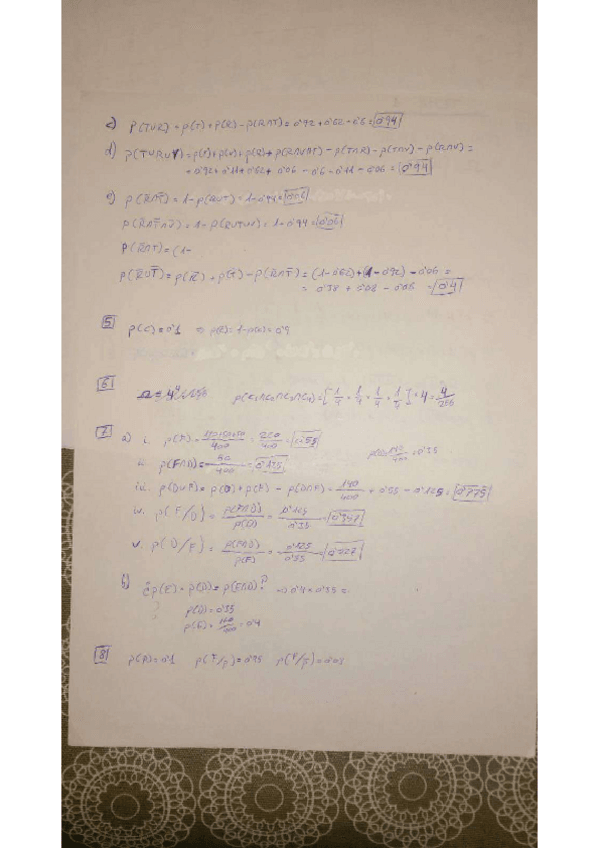 c) P(TUR) = P(T) + P(R) - P(R∩T) = 0'92 + 0'62 - 0'6 = 0'94
d) P(TURUV) = P(T) + P(V) + P(R) + P(R∩V∩T) - P(T∩R) - P(T∩V) - P(R∩V) =
= 0'92 + 0'11 + 0'62 + 0'06 - 0'6 - 0'11 - 0'06 = 0'94
e) P(R̄∩T̄) = 1 - P(RUT) = 1 - 0'94 = 0'06
P(R̄∩T̄∩V̄) = 1 - P(RUTUV) = 1 - 0'94 = 0'06
P(R̄∩T) = (1-
P(R̄UT̄) = P(R̄) + P(T̄) - P(R̄∩T̄) = (1-0'62) + (1-0'92) - 0'06 =
= 0'38 + 0'08 - 0'06 = 0'4
5 P(C) = 0'1 ⇒ = 1 - P(C) = 0'9
6 Ω = 4⁴ = 256 = [1/4 · 1/4 · 1/4 · 1/4] · 4 = 4/256
7 a) i. P(F) = /400 = /400 = 0'55
= 0'35
ii. P(F∩D) = 50/400 = 0'125
iii. P(DUF) = P(D) + P(F) - P(D∩F) = 140/400 + 0'55 - 0'125 = 0'775
iv. P(F/D) = P(F∩D)/P(D) = 0'125/0'35 = 0'357
v. P(D/F) = P(F∩D)/P(F) = 0'125/0'55 = 0'227
b) ¿P(E) · P(D) = P(E∩D)? ⇒ 0'4 · 0'35 =
P(D) = 0'35
P(E) = 160/400 = 0'4
8 = 0'1 = 0'95